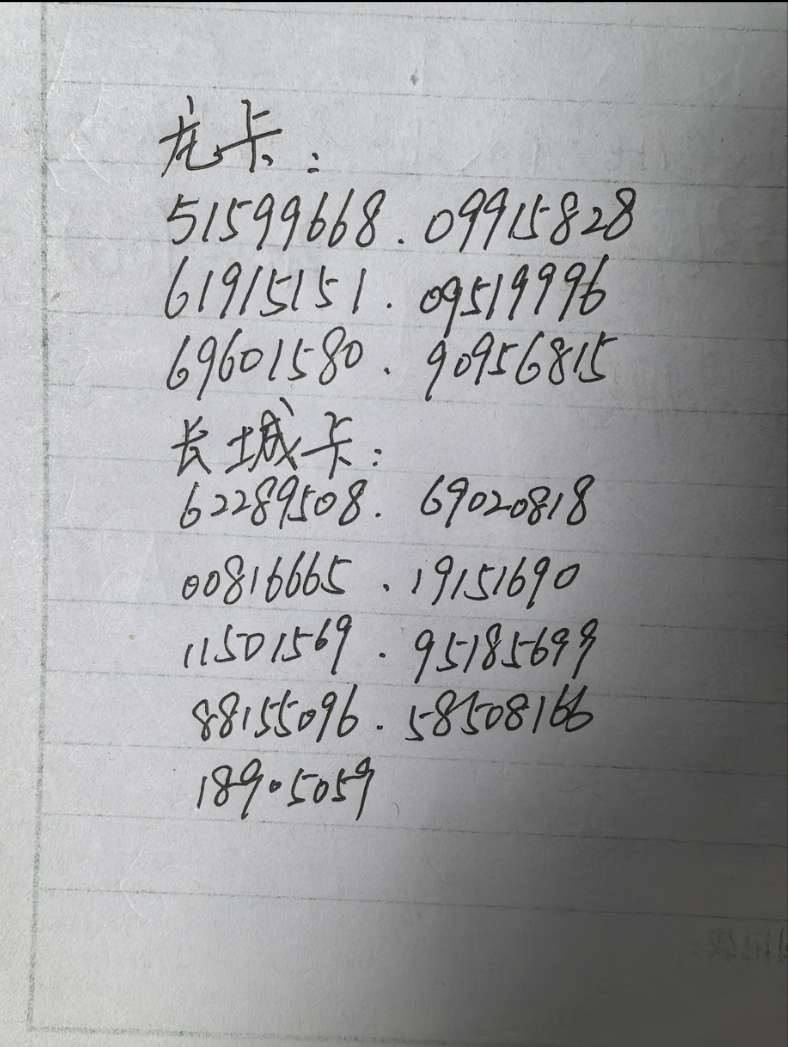 龙卡：
51599668．09915828
61915151．09519996
69601580．90956815
长城卡：
62289508．69020818
00816665．19151690
11501569．95185699
88155096．58508166
18905059